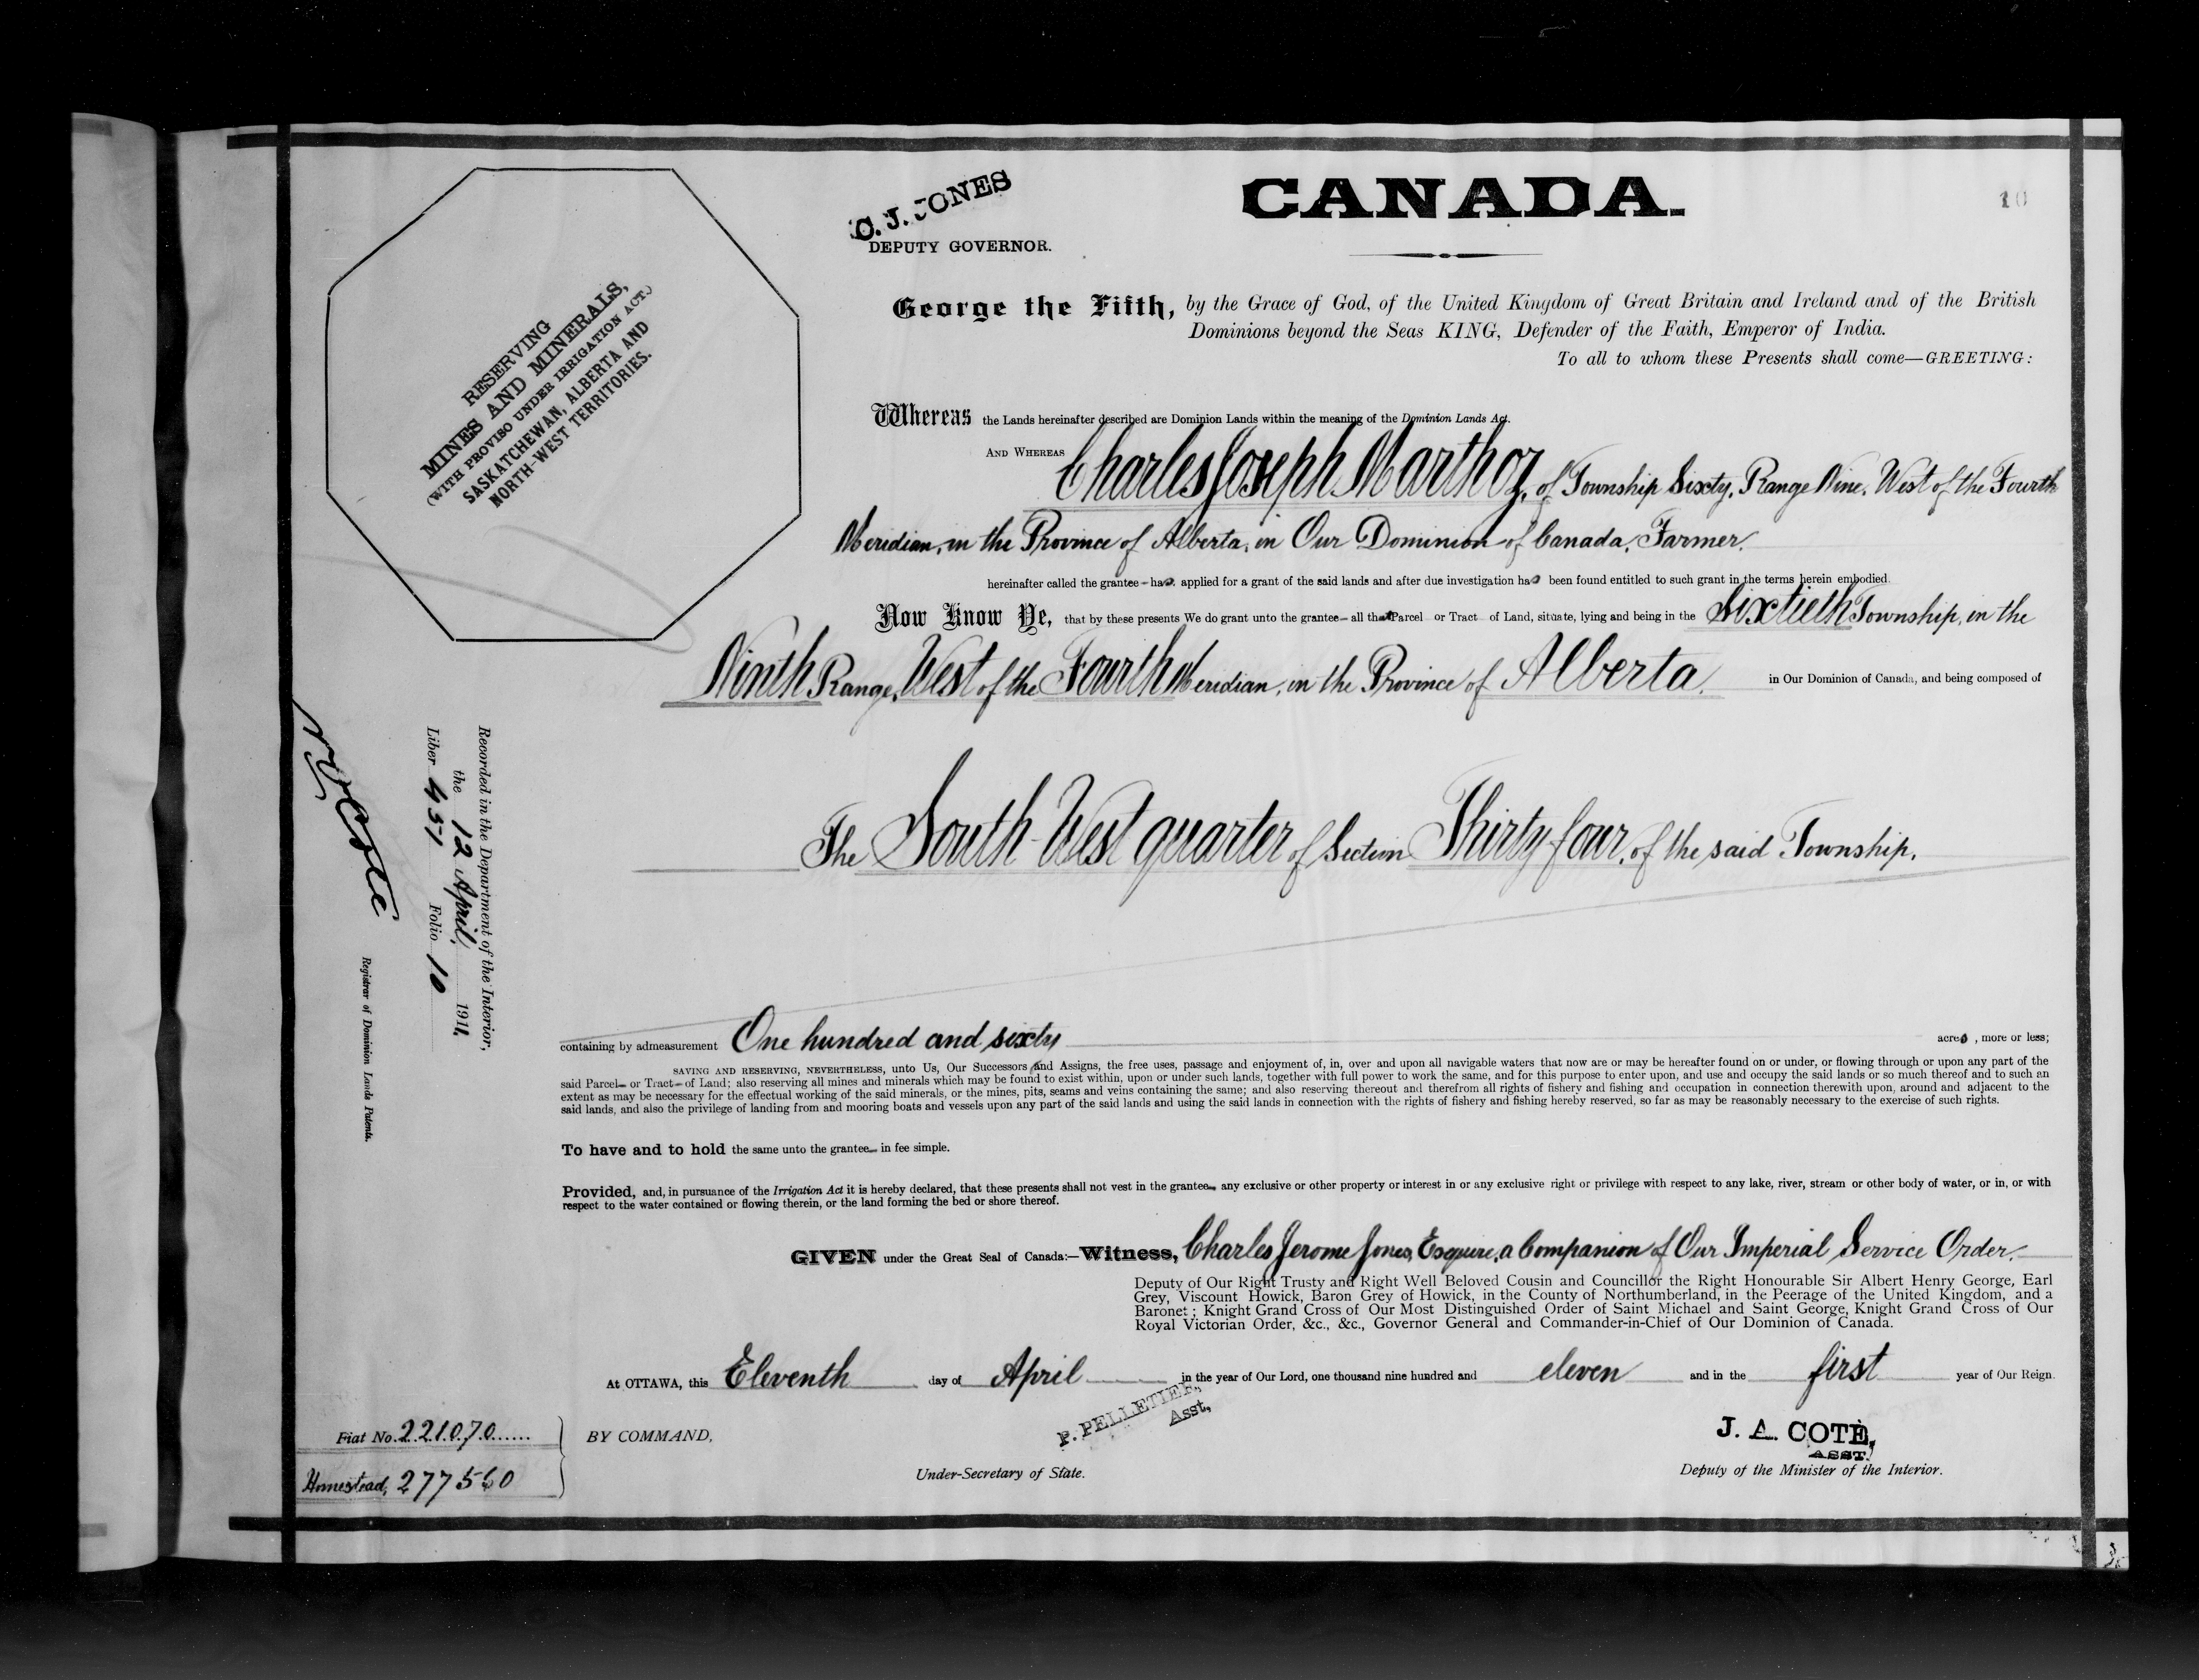 CANADA.
10
C. J. JONES
DEPUTY GOVERNOR.
RESERVING
MINES AND MINERALS,
(WITH PROVISO UNDER IRRIGATION ACT.)
SASKATCHEWAN, ALBERTA AND
NORTH-WEST TERRITORIES.
George the Fifth, by the Grace of God, of the United Kingdom of Great Britain and Ireland and of the British
Dominions beyond the Seas KING, Defender of the Faith, Emperor of India.
To all to whom these Presents shall come—GREETING:
Whereas the Lands hereinafter described are Dominion Lands within the meaning of the Dominion Lands Act.
AND WHEREAS Charles Joseph Marthoz, of Township Sixty, Range Nine, West of the Fourth
Meridian, in the Province of Alberta, in Our Dominion of Canada, Farmer.
hereinafter called the grantee has applied for a grant of the said lands and after due investigation has been found entitled to such grant in the terms herein embodied.
Now Know Ye, that by these presents We do grant unto the grantee all that Parcel or Tract of Land, situate, lying and being in the Sixtieth Township, in the
Ninth Range, West of the Fourth Meridian, in the Province of Alberta, in Our Dominion of Canada, and being composed of
The South West quarter of Section Thirty four, of the said Township.
containing by admeasurement One hundred and sixty acres, more or less;
SAVING AND RESERVING, NEVERTHELESS, unto Us, Our Successors and Assigns, the free uses, passage and enjoyment of, in, over and upon all navigable waters that now are or may be hereafter found on or under, or flowing through or upon any part of the
said Parcel or Tract of Land; also reserving all mines and minerals which may be found to exist within, upon or under such lands, together with full power to work the same, and for this purpose to enter upon, and use and occupy the said lands or so much thereof and to such an
extent as may be necessary for the effectual working of the said minerals, or the mines, pits, seams and veins containing the same; and also reserving thereout and therefrom all rights of fishery and fishing and occupation in connection therewith upon, around and adjacent to the
said lands, and also the privilege of landing from and mooring boats and vessels upon any part of the said lands and using the said lands in connection with the rights of fishery and fishing hereby reserved, so far as may be reasonably necessary to the exercise of such rights.
To have and to hold the same unto the grantee in fee simple.
Provided, and, in pursuance of the Irrigation Act it is hereby declared, that these presents shall not vest in the grantee any exclusive or other property or interest in or any exclusive right or privilege with respect to any lake, river, stream or other body of water, or in, or with
respect to the water contained or flowing therein, or the land forming the bed or shore thereof.
GIVEN under the Great Seal of Canada:—Witness, Charles Jerome Jones, Esquire, a Companion of Our Imperial Service Order.
Deputy of Our Right Trusty and Right Well Beloved Cousin and Councillor the Right Honourable Sir Albert Henry George, Earl
Grey, Viscount Howick, Baron Grey of Howick, in the County of Northumberland, in the Peerage of the United Kingdom, and a
Baronet; Knight Grand Cross of Our Most Distinguished Order of Saint Michael and Saint George, Knight Grand Cross of Our
Royal Victorian Order, &c., &c., Governor General and Commander-in-Chief of Our Dominion of Canada.
At OTTAWA, this Eleventh day of April in the year of Our Lord, one thousand nine hundred and eleven and in the first year of Our Reign.
BY COMMAND,
P. PELLETIER,
Asst,
Under-Secretary of State.
J. A. COTE,
ASST.
Deputy of the Minister of the Interior.
Fiat No. 221070
Homestead, 277560
Recorded in the Department of the Interior,
the 12 April, 1911,
Liber 451 Folio 10
Registrar of Dominion Lands Patents.